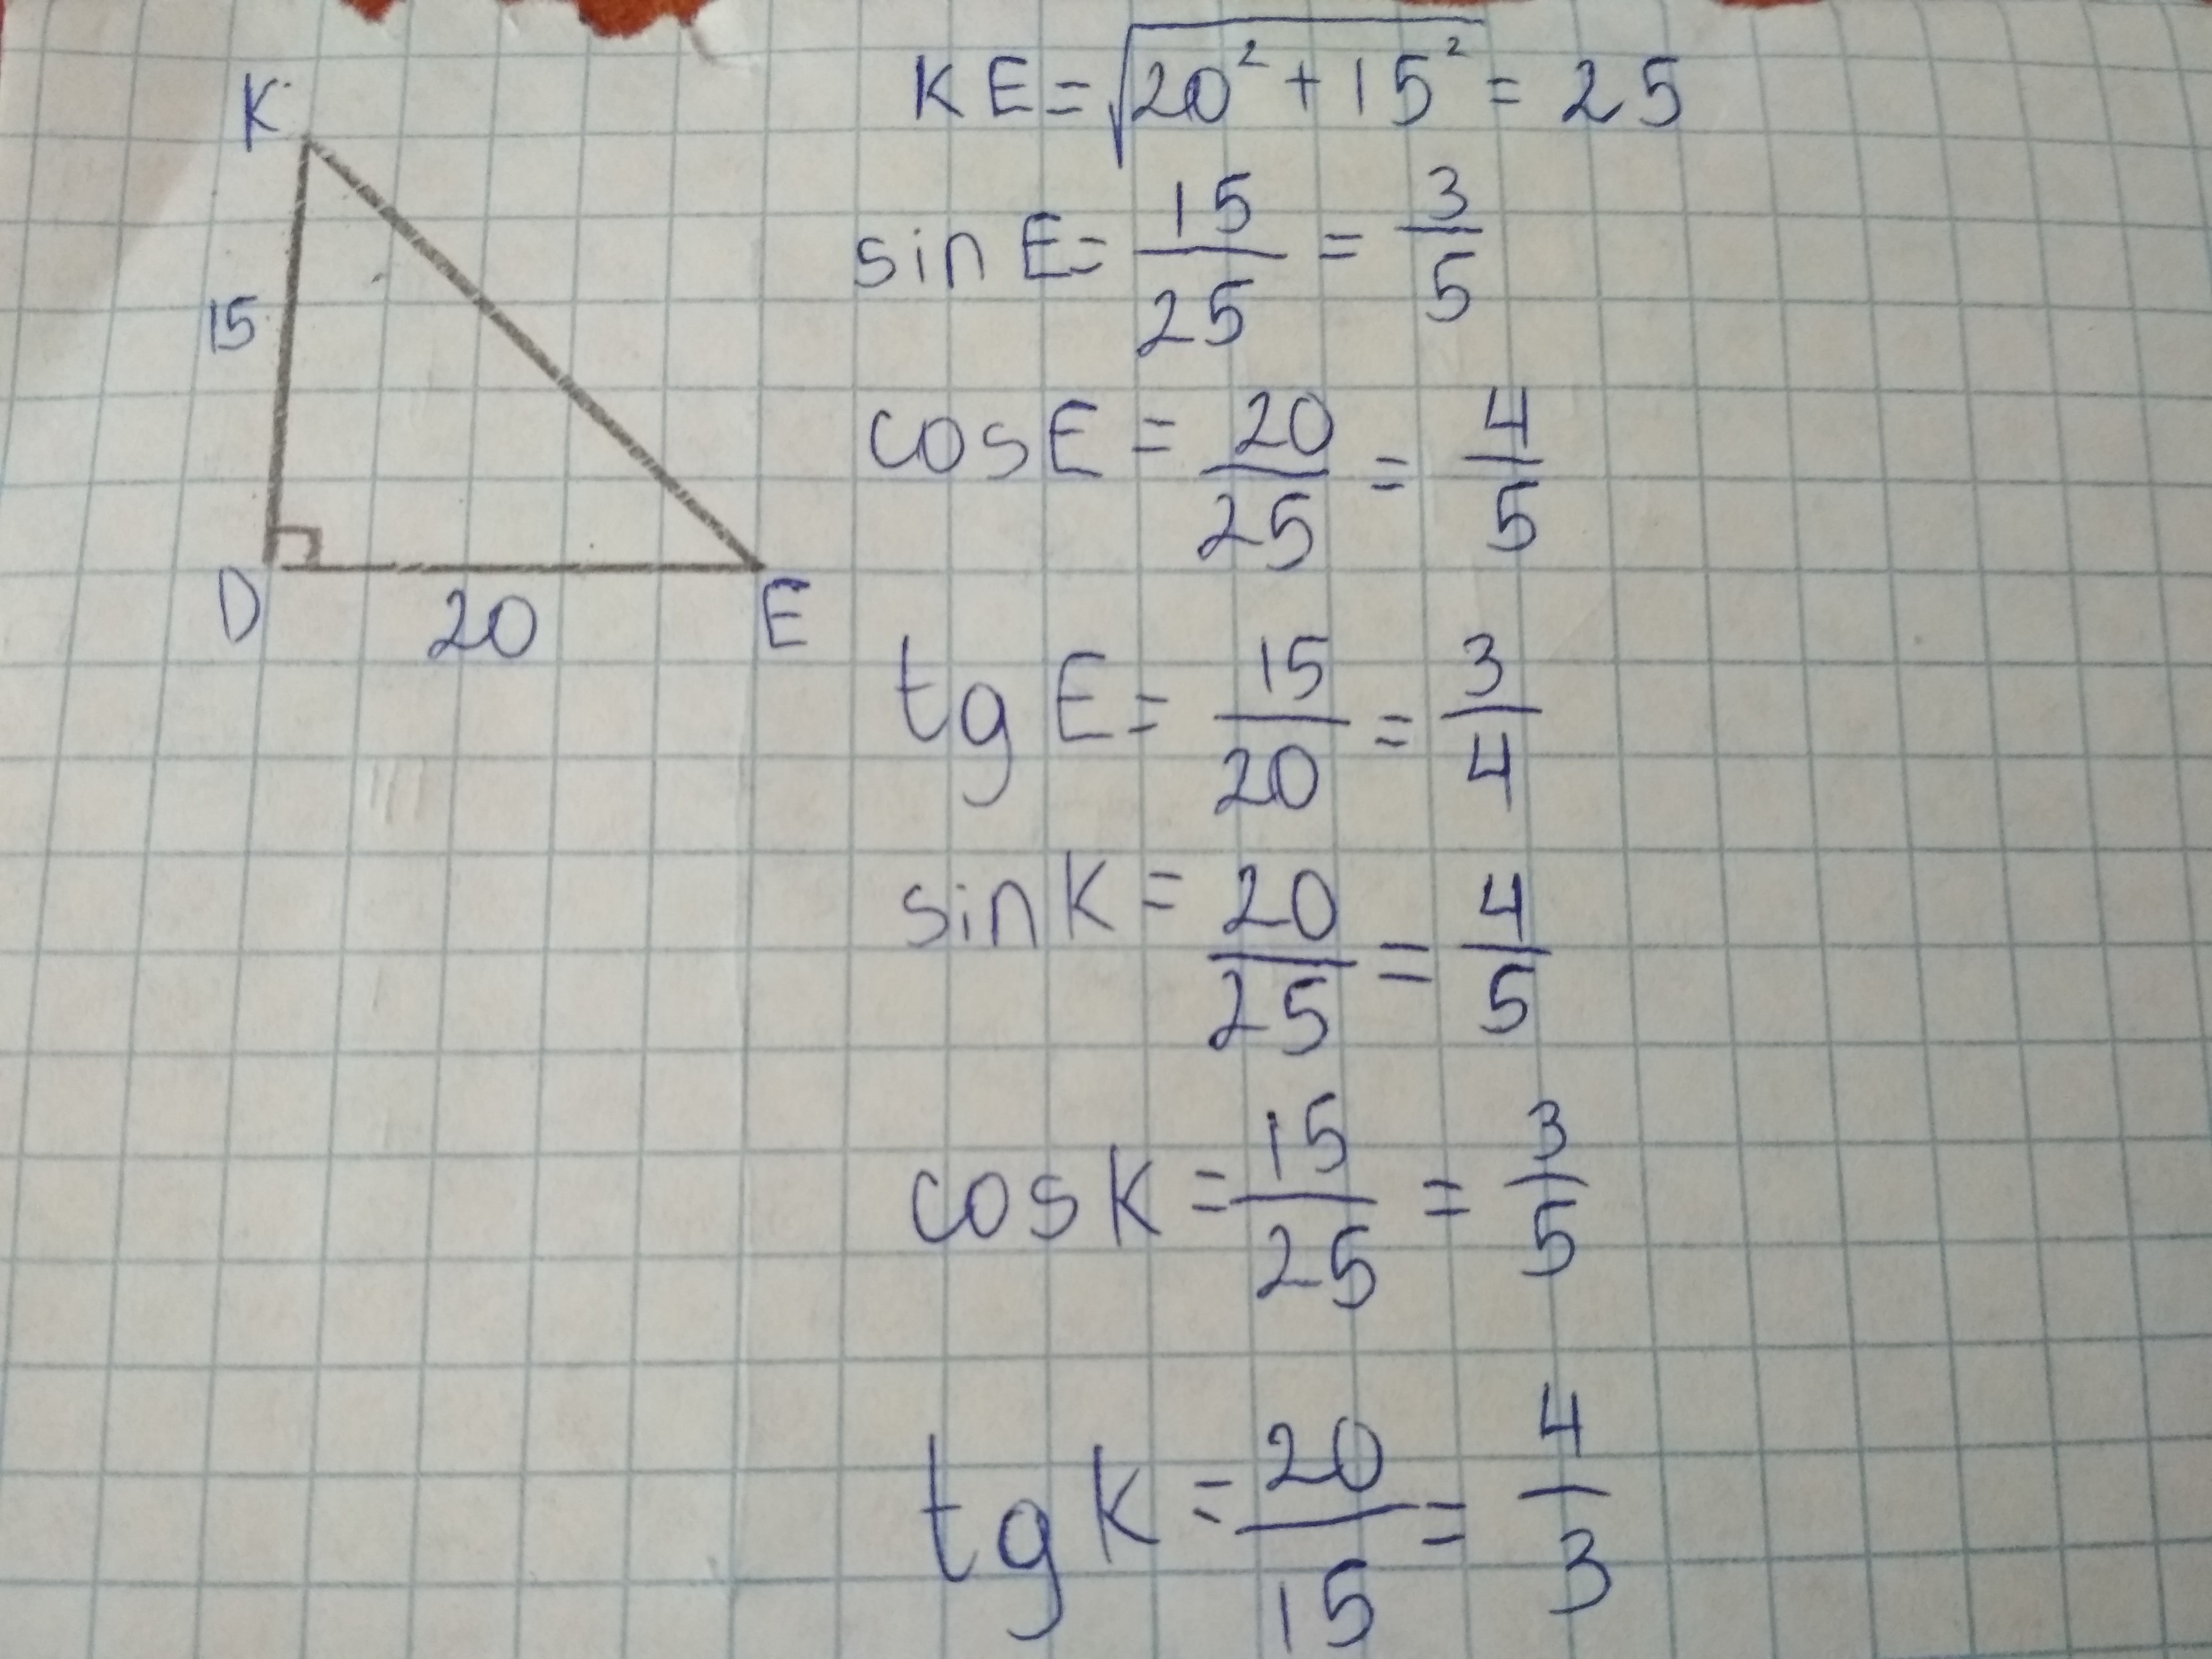 K
15
D
20
E
KE = √(20² + 15²) = 25
sin E = 15/25 = 3/5
cos E = 20/25 = 4/5
tg E = 15/20 = 3/4
sin K = 20/25 = 4/5
cos K = 15/25 = 3/5
tg K = 20/15 = 4/3